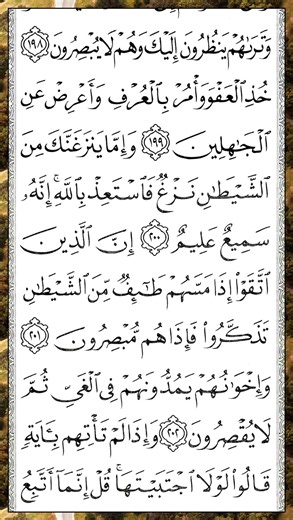 وَتَرَىٰهُمْ يَنظُرُونَ إِلَيْكَ وَهُمْ لَا يُبْصِرُونَ ١٩٨
خُذِ ٱلْعَفْوَ وَأْمُرْ بِٱلْعُرْفِ وَأَعْرِضْ عَنِ
ٱلْجَٰهِلِينَ ١٩٩ وَإِمَّا يَنزَغَنَّكَ مِنَ
ٱلشَّيْطَٰنِ نَزْغٌ فَٱسْتَعِذْ بِٱللَّهِ ۚ إِنَّهُۥ
سَمِيعٌ عَلِيمٌ ٢٠٠ إِنَّ ٱلَّذِينَ
ٱتَّقَوْا۟ إِذَا مَسَّهُمْ طَٰٓئِفٌ مِّنَ ٱلشَّيْطَٰنِ
تَذَكَّرُوا۟ فَإِذَا هُم مُّبْصِرُونَ ٢٠١
وَإِخْوَٰنُهُمْ يَمُدُّونَهُمْ فِى ٱلْغَىِّ ثُمَّ
لَا يُقْصِرُونَ ٢٠٢ وَإِذَا لَمْ تَأْتِهِم بِـَٔايَةٍ
قَالُوا۟ لَوْلَا ٱجْتَبَيْتَهَا ۚ قُلْ إِنَّمَآ أَتَّبِعُ